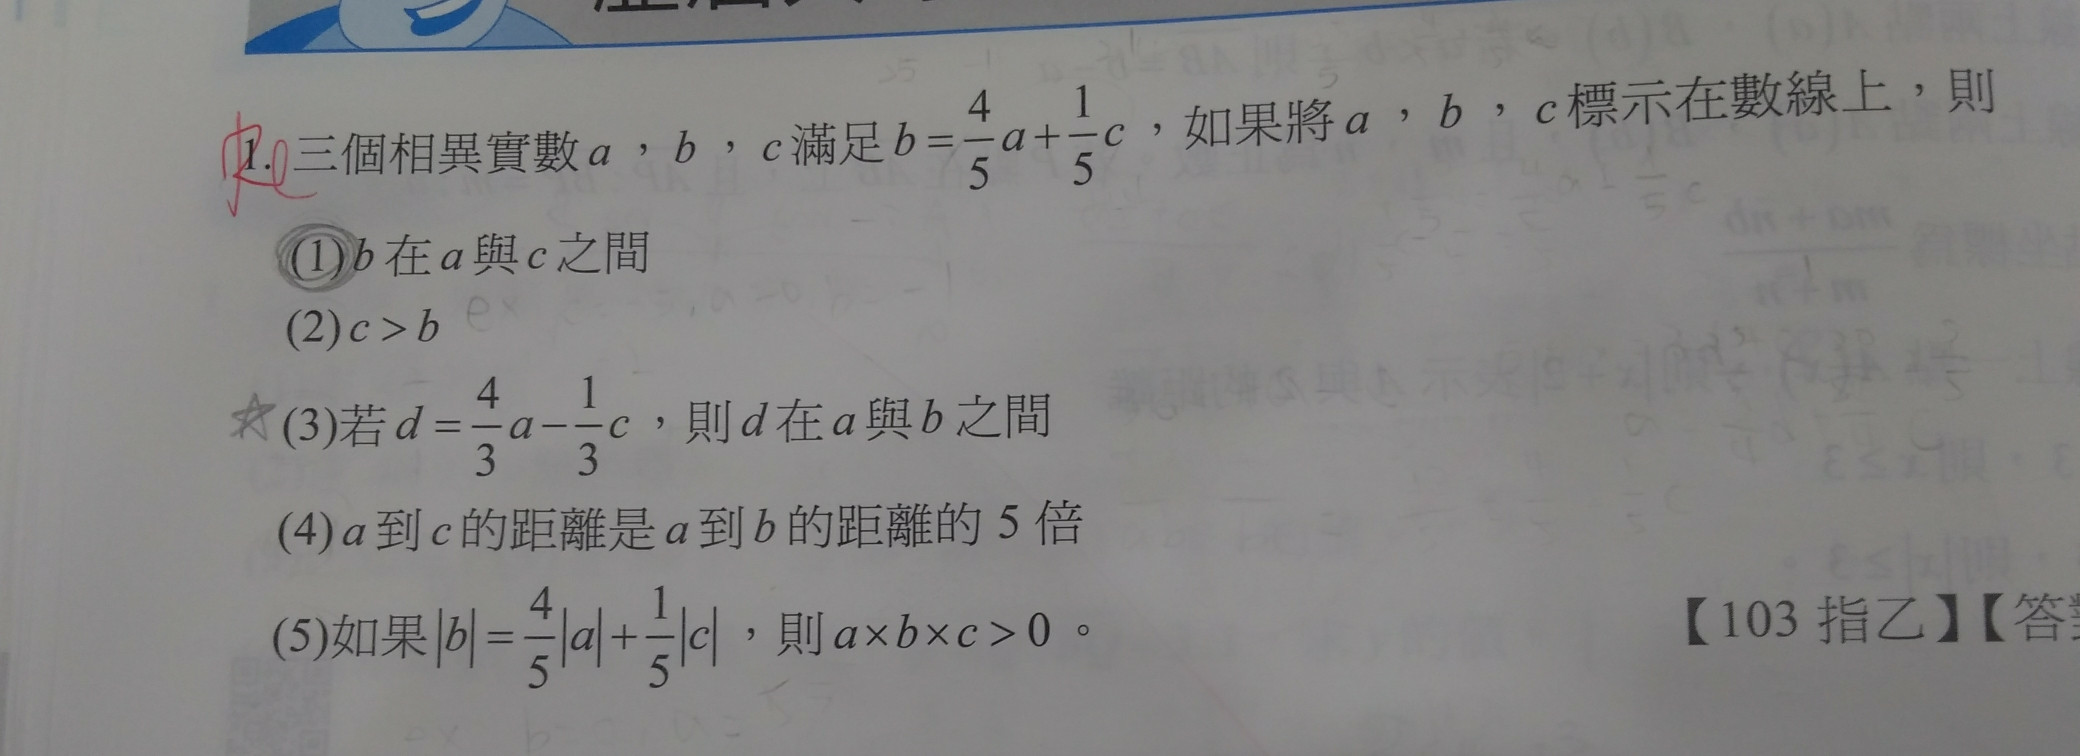 Re 1. 三個相異實數 a，b，c 滿足 b = 4/5 a + 1/5 c，如果將 a，b，c 標示在數線上，則
(1) b 在 a 與 c 之間
(2) c > b
☆ (3)若 d = 4/3 a − 1/3 c，則 d 在 a 與 b 之間
(4) a 到 c 的距離是 a 到 b 的距離的 5 倍
(5)如果 |b| = 4/5 |a| + 1/5 |c|，則 a × b × c > 0。
【103 指乙】【答